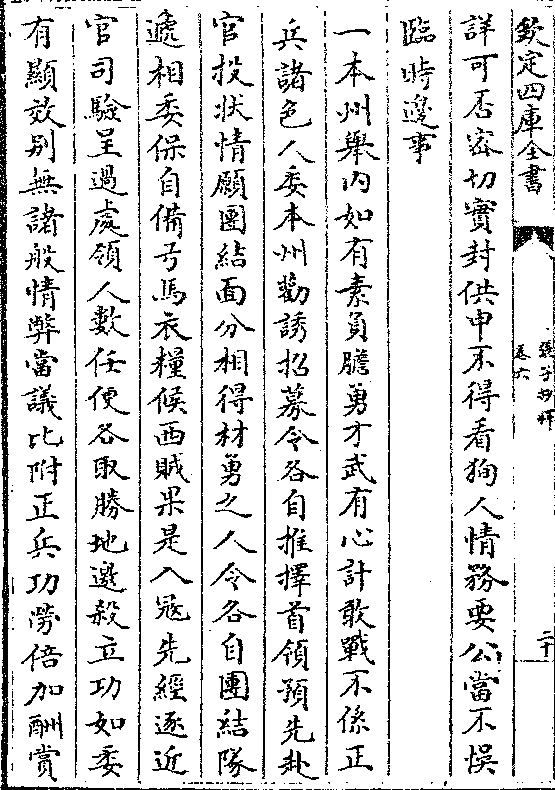 欽定四庫全書
張子抄釋
卷六
二十
詳可否密切實封供申不得看狥人情務要公當不悞
臨時邊事
一本州舉内如有素負膽勇才武有心計敢戰不係正
兵諸色人委本州勸誘招募令各自推擇首領預先赴
官投状情願團結面分相得材勇之人令各自團結隊
遞相委保自備弓馬衣糧候西賊果是入冦先經逐近
官司驗呈過處領人數任便各取勝地邀殺立功如委
有顯效别無諸般情弊當議比附正兵功勞倍加酬賞